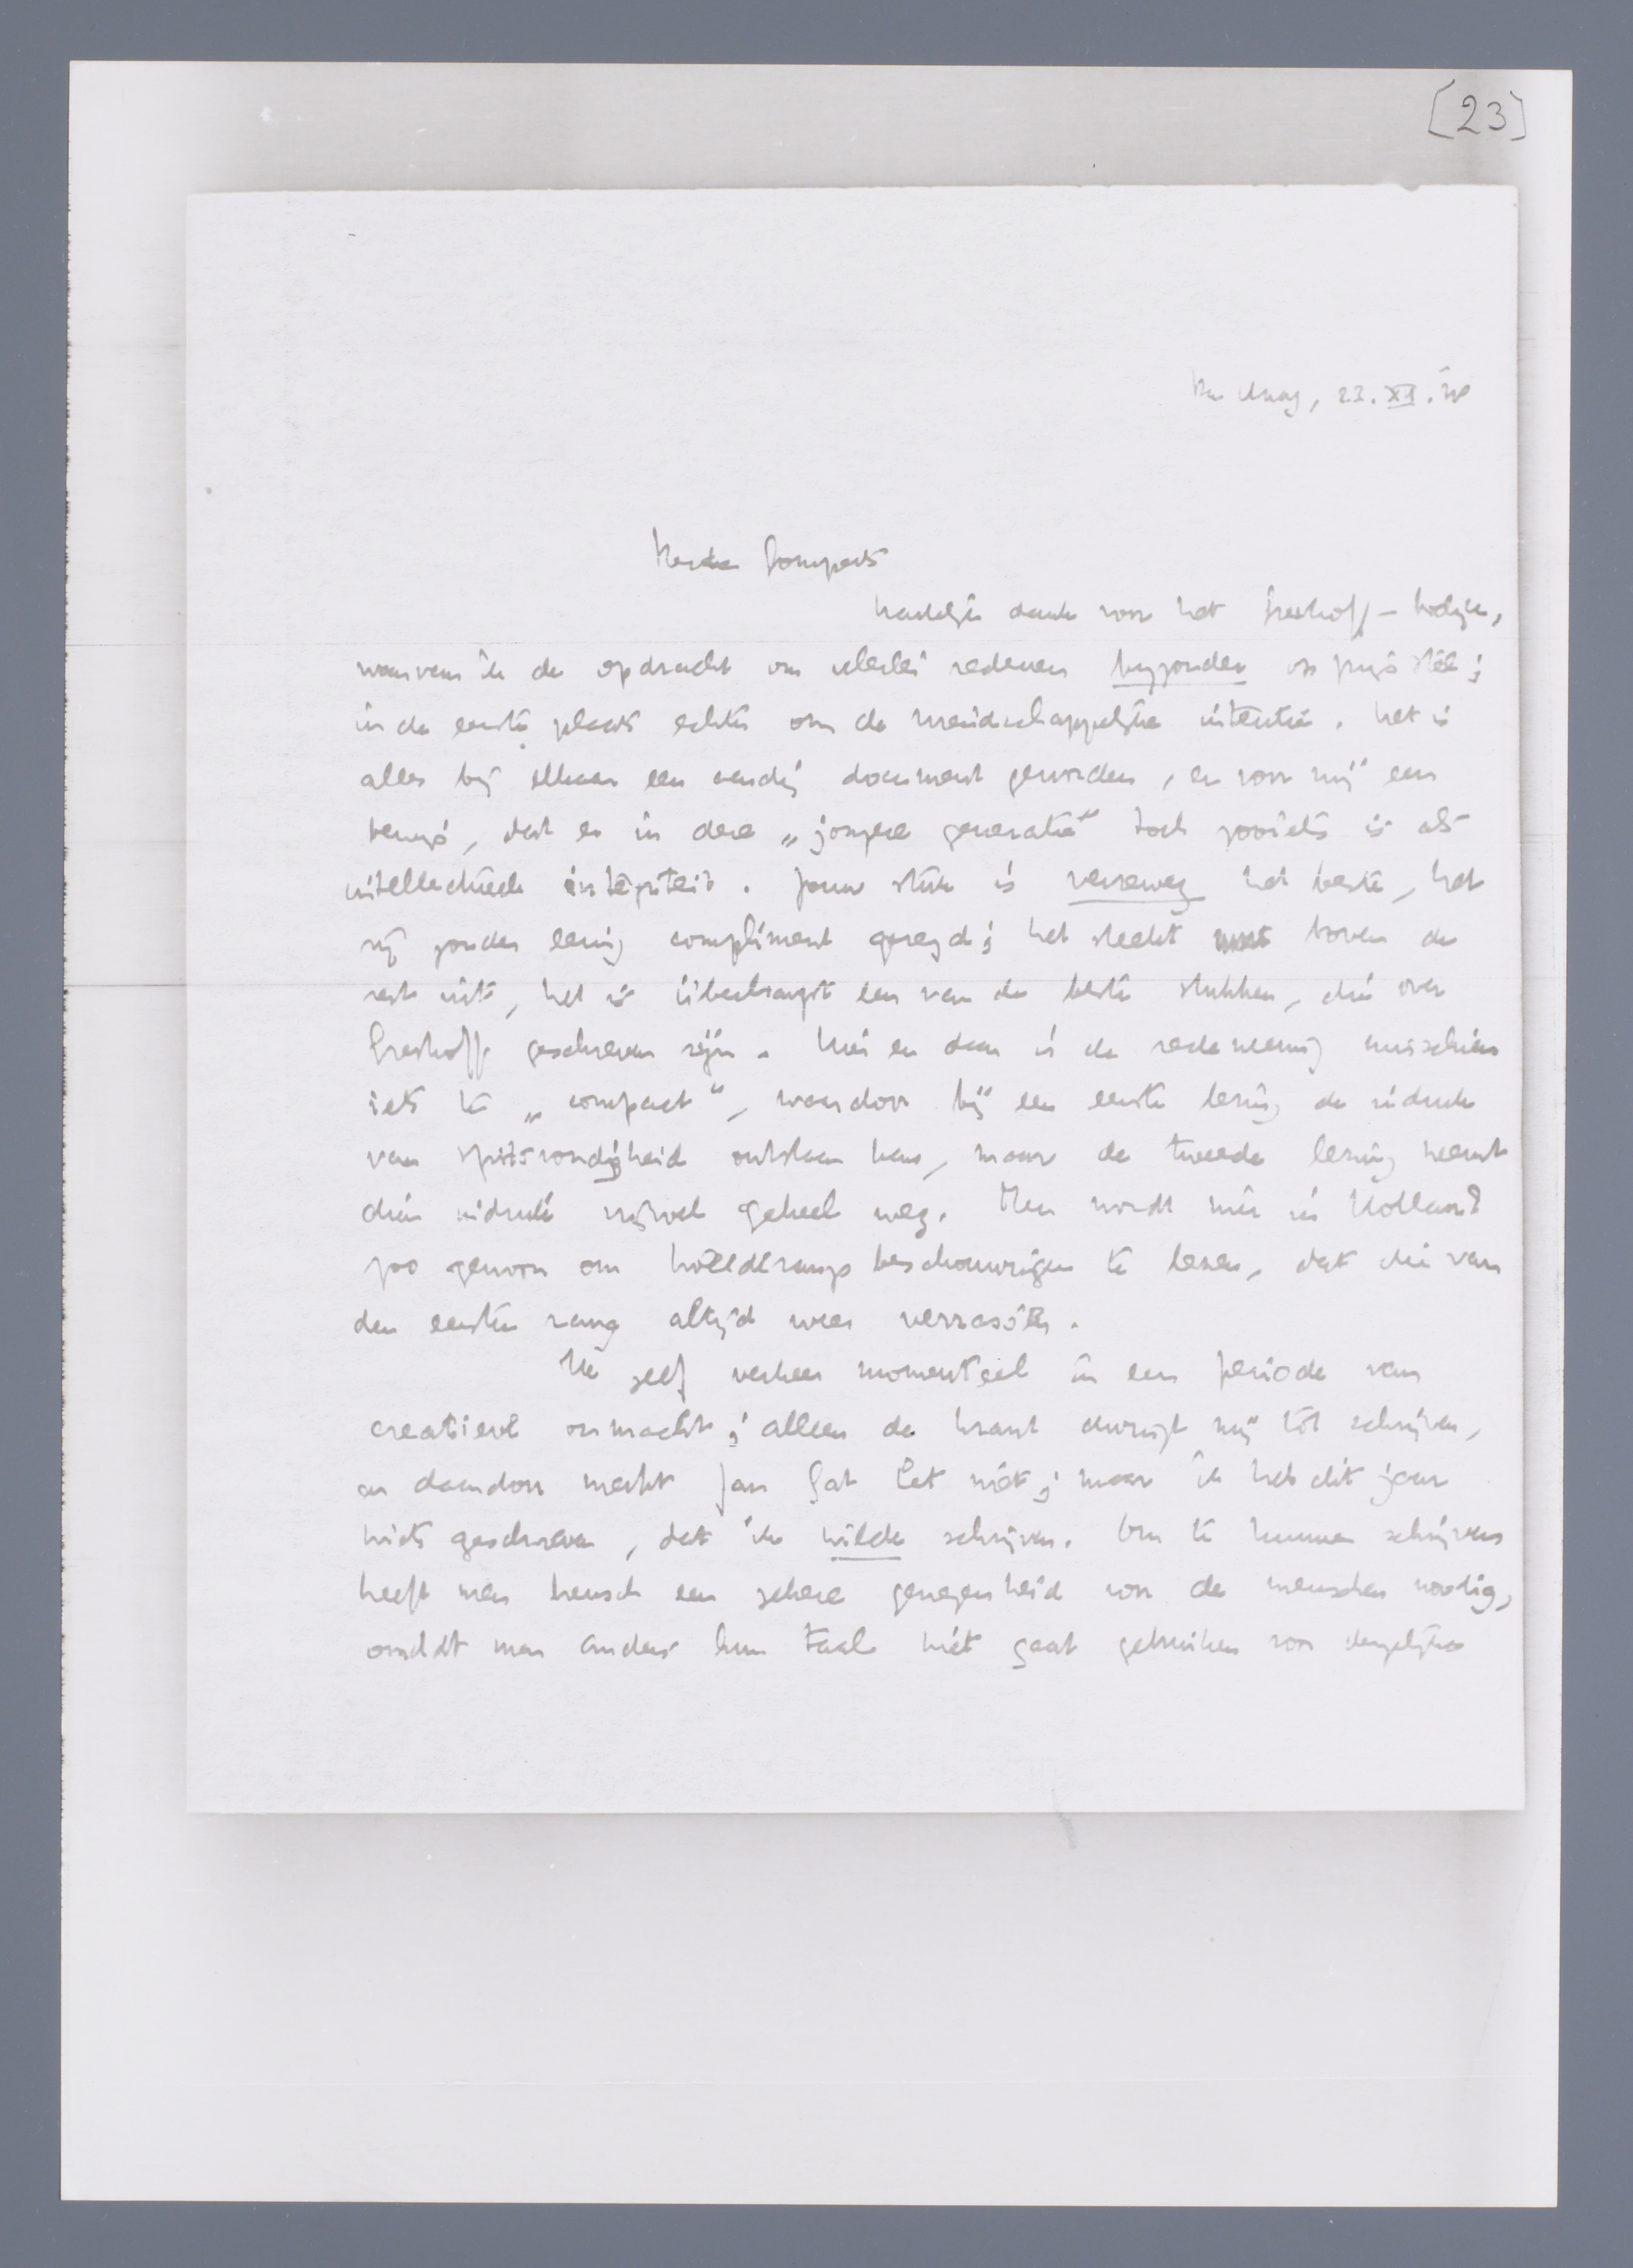 [23]
Den Haag, 23.XII.38
Beste Gomperts
Hartelijk dank voor het Greshoff-boekje,
waarvan ik de opdracht om allerlei redenen bijzonder op prijs stel;
in de eerste plaats echter om de vriendschappelijke intentie. Het is
alles bij elkaar een aardig document geworden, en voor mij een
bewijs, dat er in deze „jongere generatie” toch zooiets is als
intellectueele integriteit. Jouw stuk is verreweg het beste, het
zij zonder eenig compliment gezegd; het steekt niet boven de
rest uit, het is überhaupt een van de beste stukken, die over
Greshoff geschreven zijn. Hier en daar is de redeneering misschien
iets te „compact”, waardoor bij een eerste lezing de indruk
van spitsvondigheid ontstaan kan, maar de tweede lezing neemt
dien indruk vrijwel geheel weg. Men wordt hier in Holland
zoo gewoon om tweederangs beschouwingen te lezen, dat die van
den eersten rang altijd weer verrassen.
Ik zelf verkeer momenteel in een periode van
creatieve onmacht; alleen de krant dwingt mij tot schrijven,
en daardoor merkt Jan Gat het niet; maar ik heb dit jaar
niets geschreven, dat ik wilde schrijven. Om te kunnen schrijven
heeft men heusch een zekere genegenheid voor de menschen noodig,
omdat men anders hun taal niet gaat gebruiken voor dergelijke